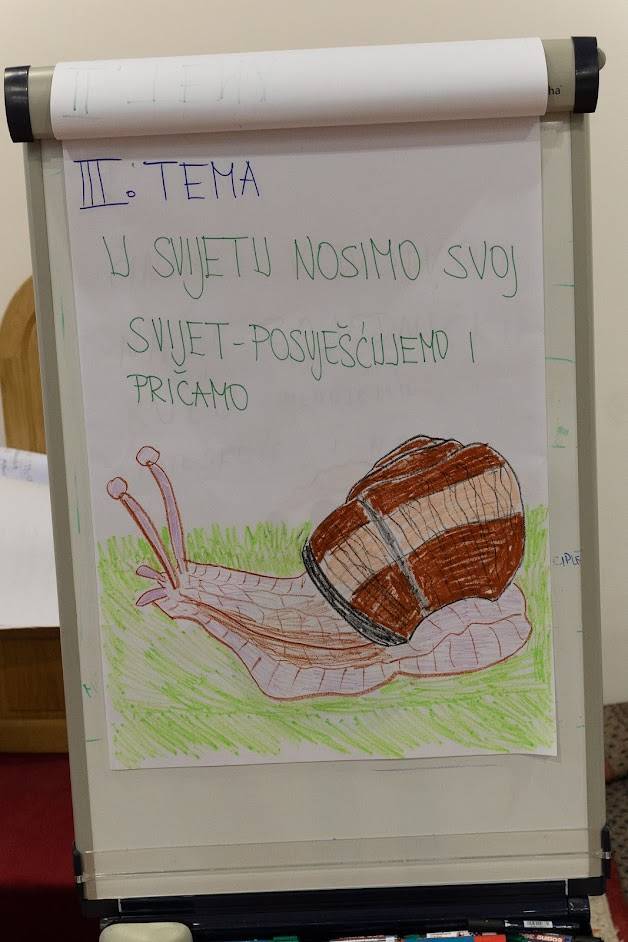 III. TEMA
U SVIJETU NOSIMO SVOJ
SVIJET-POSVJEŠĆUJEMO I
PRIČAMO